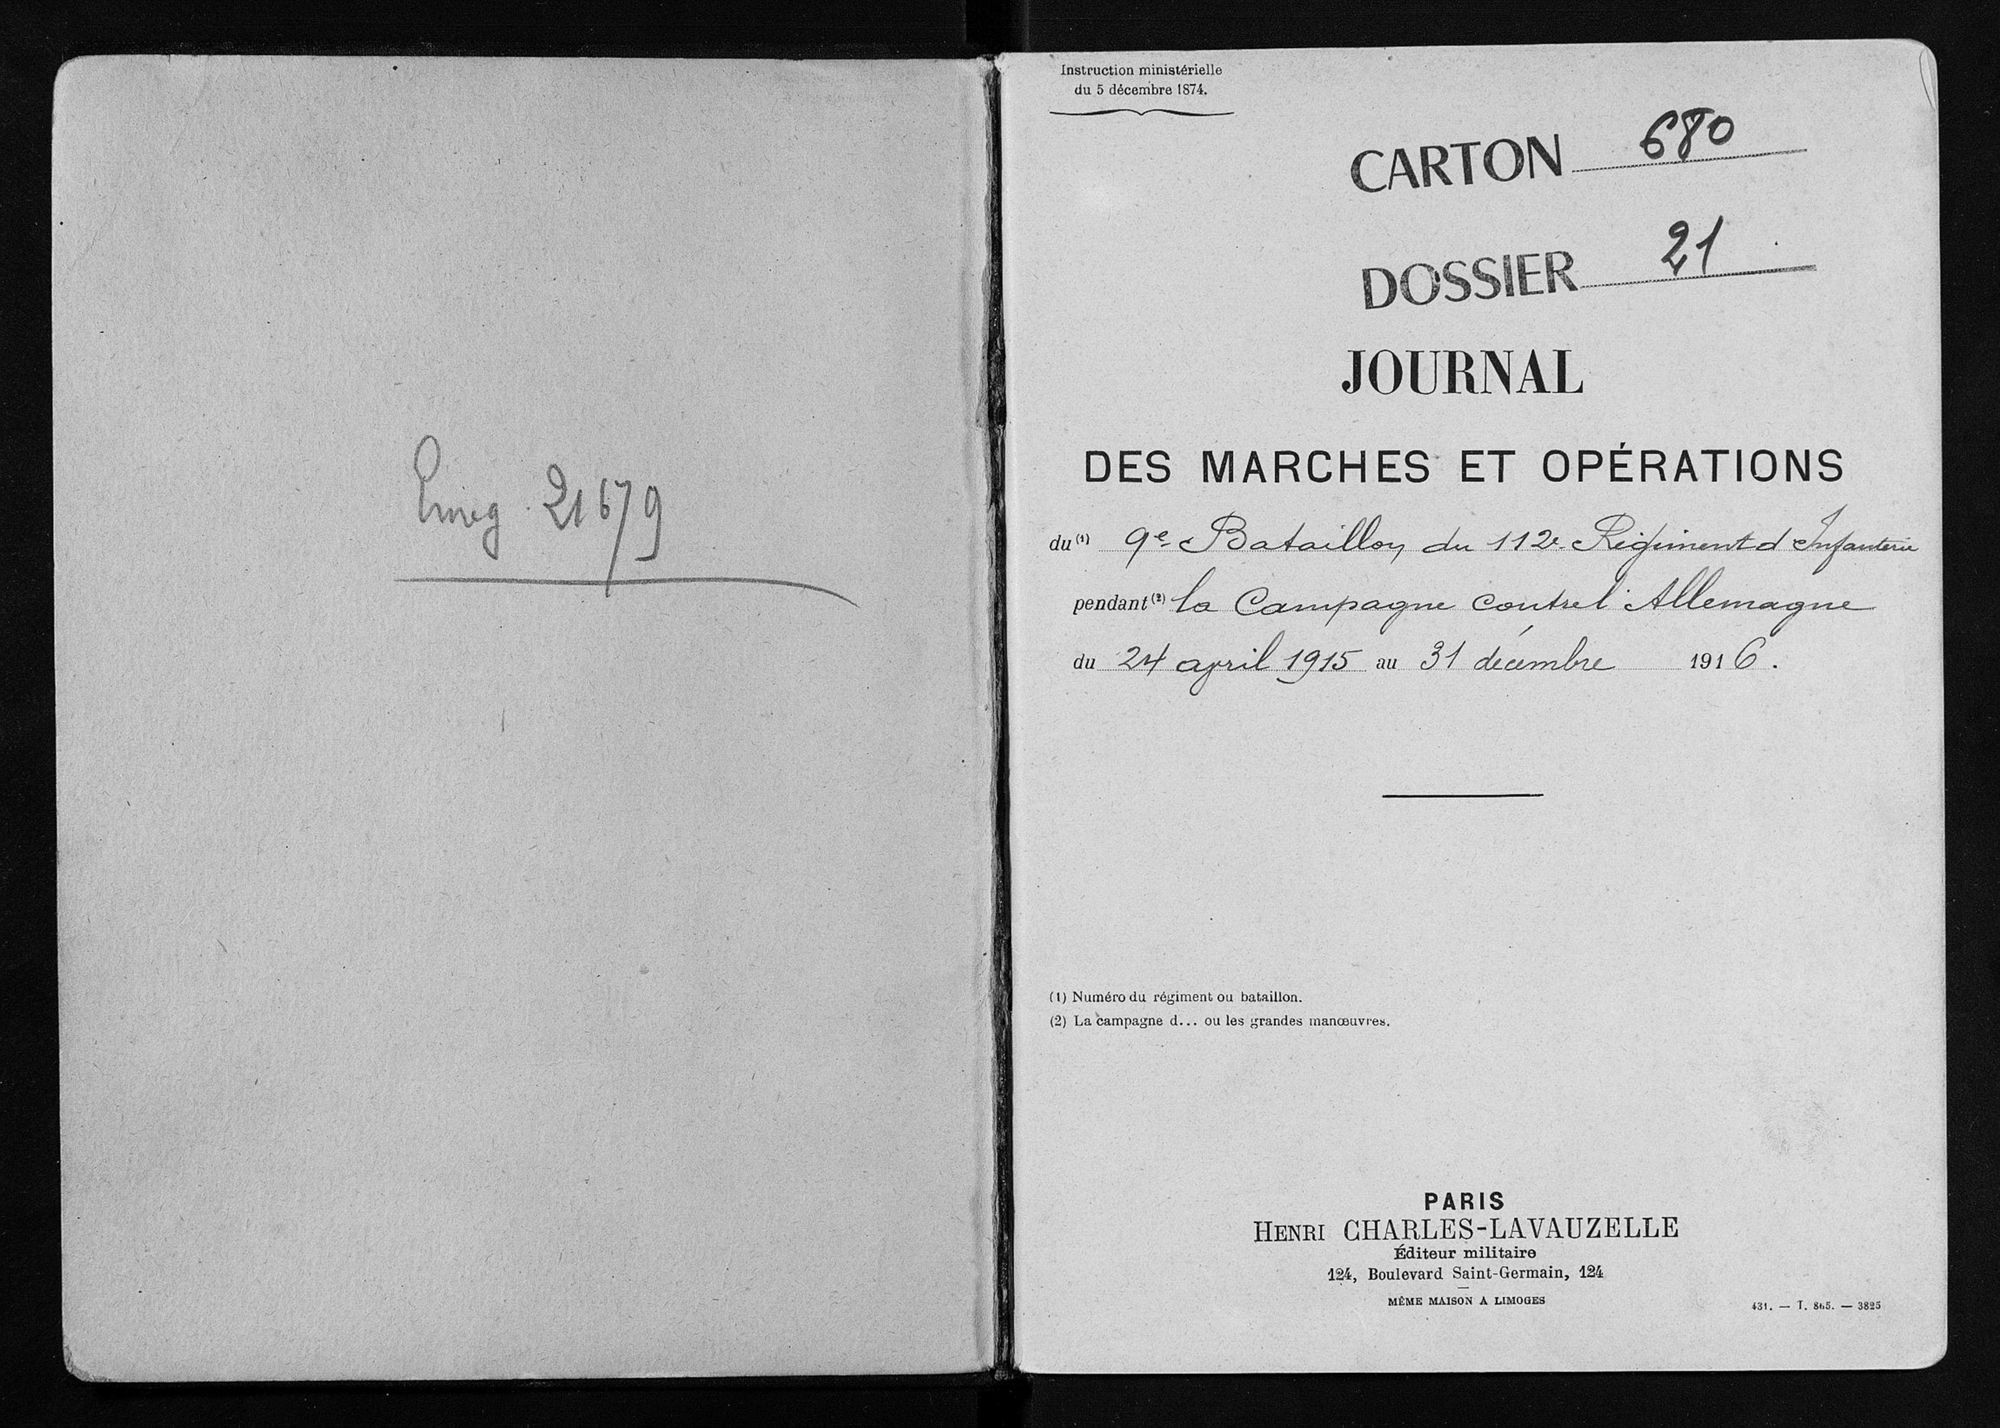 Enreg. 21679
Instruction ministérielle
du 5 décembre 1874.
CARTON 680
DOSSIER 21
JOURNAL
DES MARCHES ET OPÉRATIONS
du (1) 9e Bataillon du 112e Régiment d'Infanterie
pendant (2) la Campagne contre l'Allemagne
du 24 april 1915 au 31 décembre 1916.
(1) Numéro du régiment ou bataillon.
(2) La campagne d... ou les grandes manœuvres.
PARIS
HENRI CHARLES-LAVAUZELLE
Éditeur militaire
124, Boulevard Saint-Germain, 124
MÊME MAISON A LIMOGES
431. — T. 865. — 3825